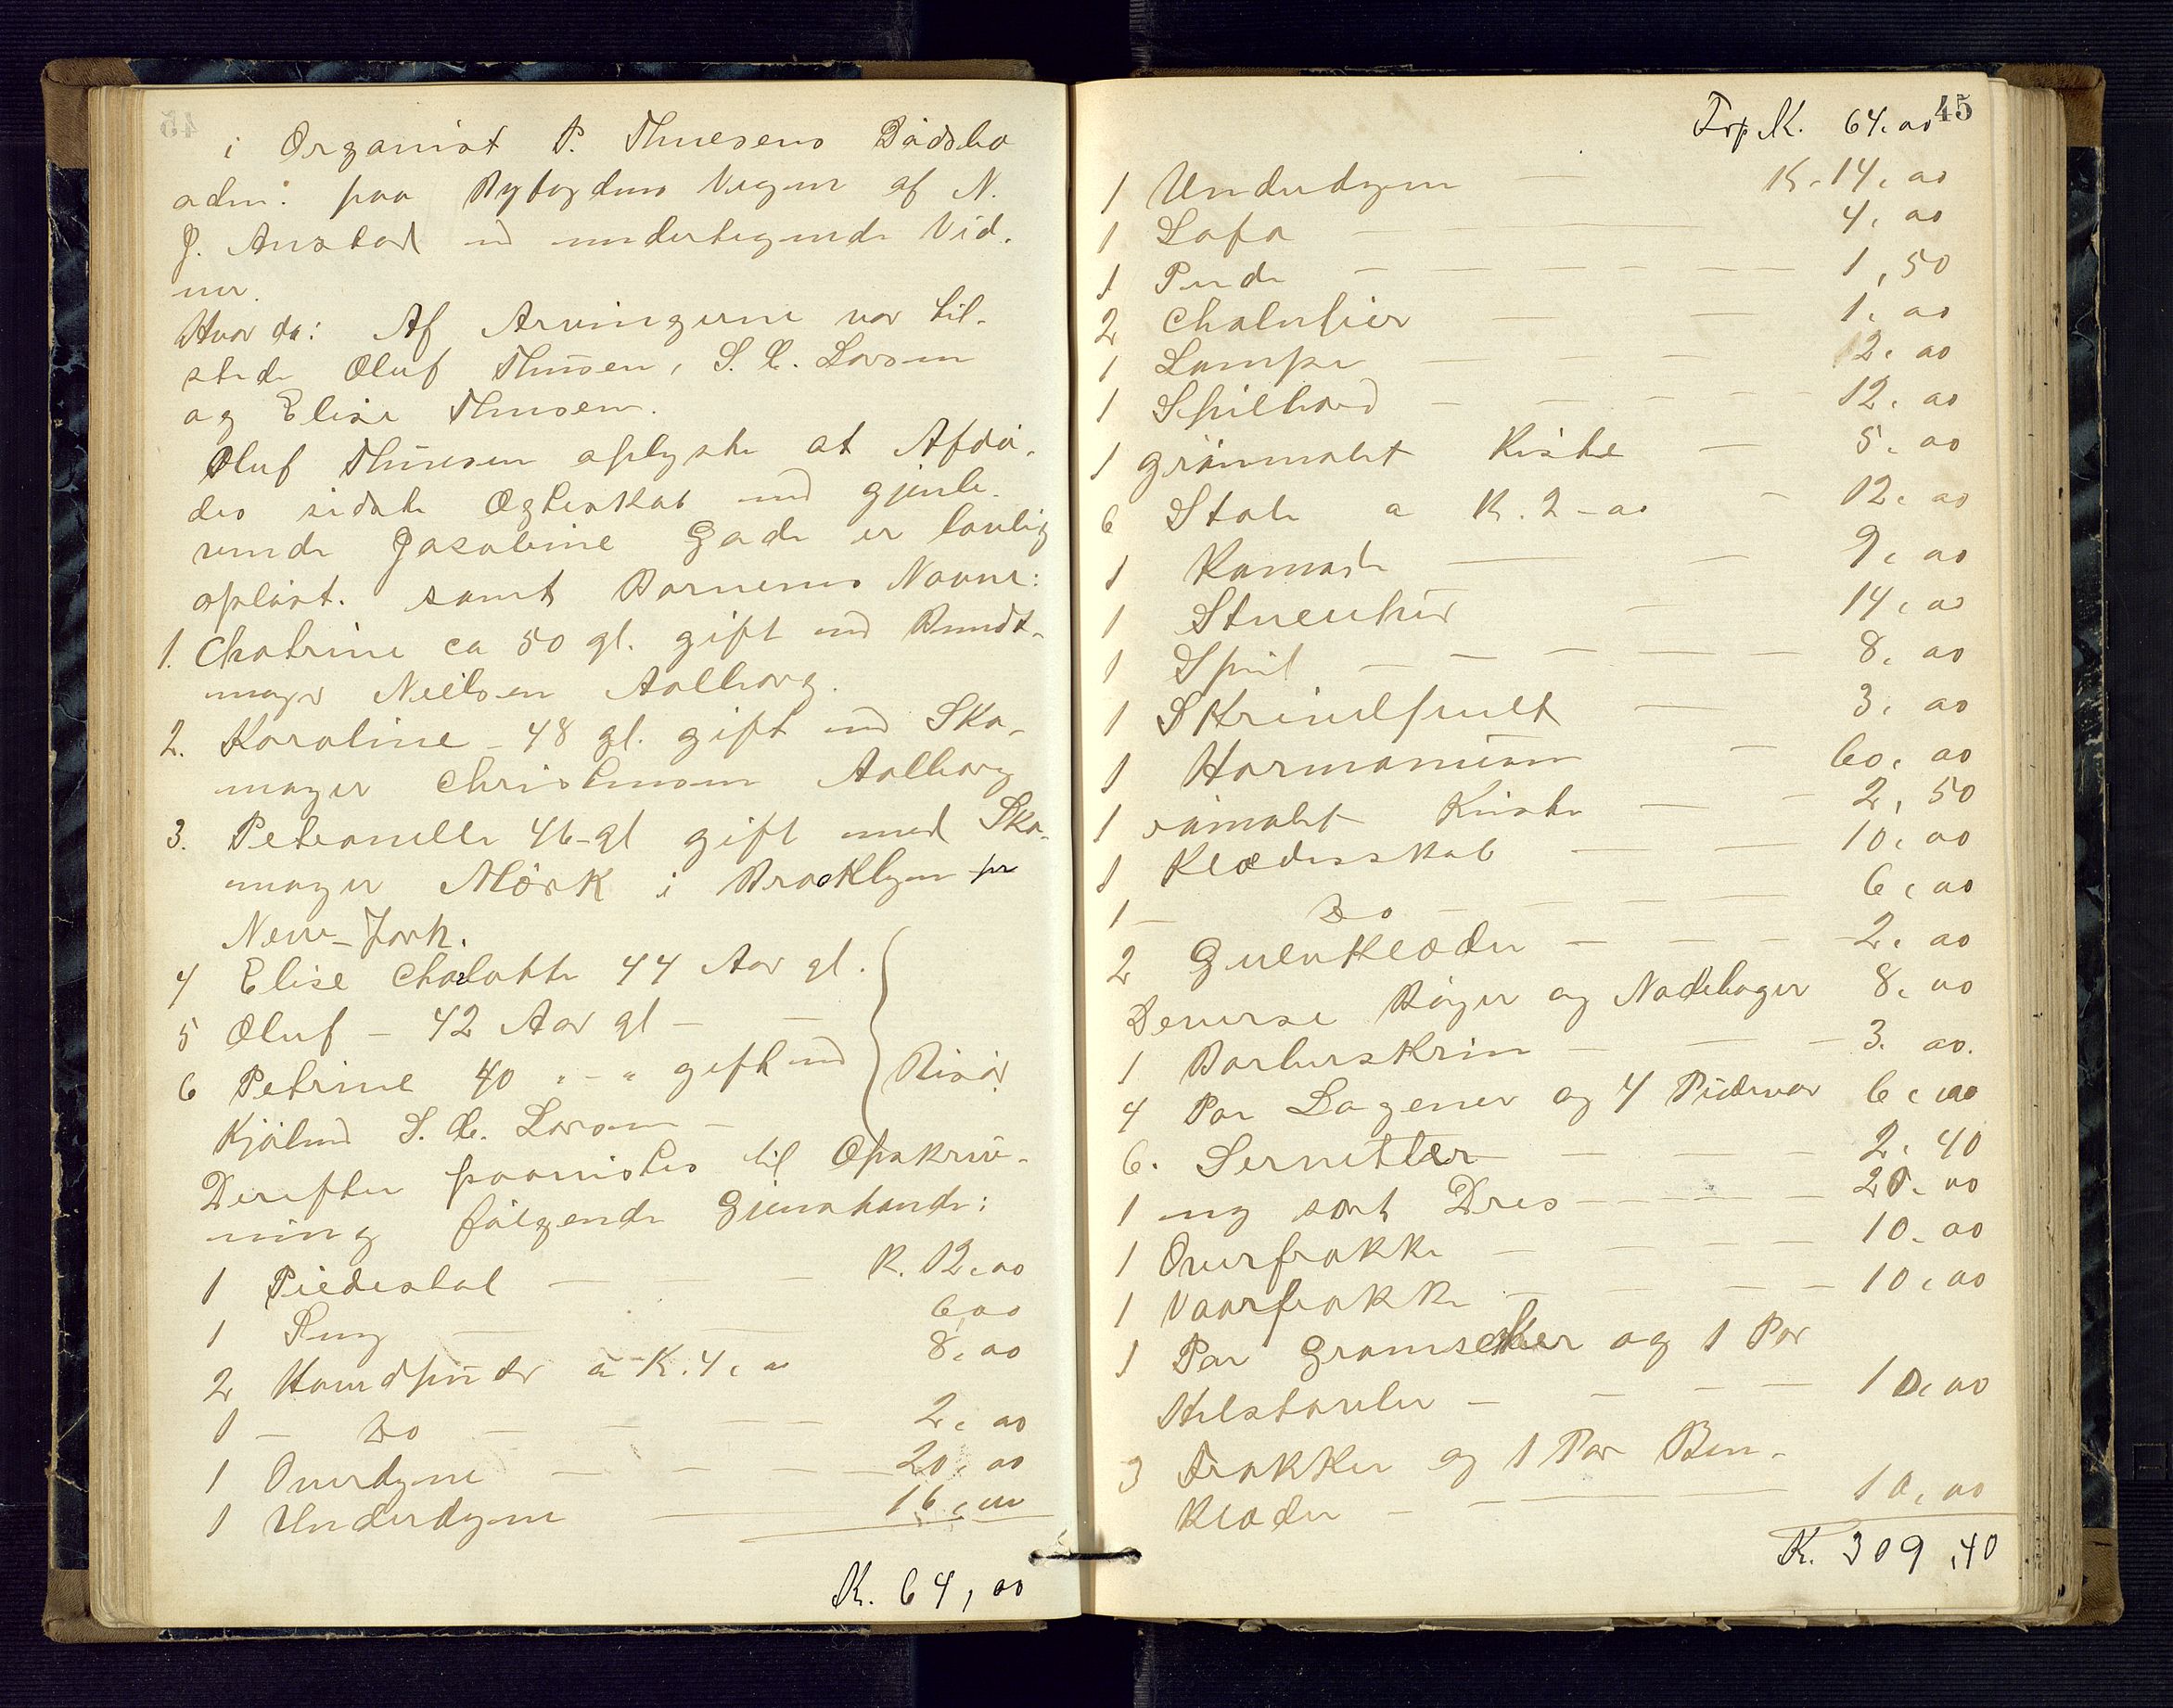 i Organist P. Thuesens Dödsbo
adm: paa Byfogdens Vegne af N.
J. Anstad med undertegnede Vid-
ner.
Hvor da: Af Arvingerne var til-
stede Oluf Thuesen, S. C. Larsen
og Elise Thuesen.
Oluf Thuesen oplyste at Afdö-
des sidste Ægteskab med gjenle-
vende Jasobine Gade er lovlig
oplöst. samt Börnenes Navne:
1. Chatrine ca 50 gl. gift med Bundt-
mager Nielsen Aalborg.
2. Karoline - 48 gl. gift med Sko-
mager Christensen Aalborg
3. Petronelle 46-gl gift med Sko-
mager Mörk i Brooklyn pr
New-York.
4 Elise Charlotte 44 Aar gl.
5 Oluf - 42 Aar gl -
6 Petrine 40 " - " gift med
Risör
Kjölmd S. C. Larsen -
Derefter paavistes til Opskriv-
ning fölgende Gjenstande:
1 Piedestal - K. 12,00
1 Seng - 6,00
2 Hovedpuder a K. 4,00 8,00
1 - Do - 2,00
1 Overdyne - 20,00
1 Underdyne - 16,00
K. 64,00
45
Trp. K. 64,00
1 Underdyne - K. 14,00
1 Sofa - 4,00
1 Pude - 1,50
2 Chalusier - 1,00
1 Lampe - 12,00
1 Spilbord - 12,00
1 grönmalet Kiste - 5,00
6 Stole a K. 2-00 - 12,00
1 Komode - 9,00
1 Stueuhr - 14,00
1 Speil - 8,00
1 Skrivepult - 3,00
1 Harmonium - 60,00
1 römalet Kiste - 2,50
1 Klædesskab - 10,00
1 - Do - 6,00
2 Gulvklæder - 2,00
Deverse Böger og Nodeböger 8,00
1 Barberskrin - 3.00.
4 Par Lagener og 4 Pudevar 6,00
6. Servietter - 2,40
1 ny sort Dres - 20,00
1 Overfrakke - 10,00
1 Vaarfrakke - 10,00
1 Par Gramscher og 1 Par
Helstövler - 10,00
3 Frakker og 1 Par Ben-
klæder - 10,00
K. 309,40